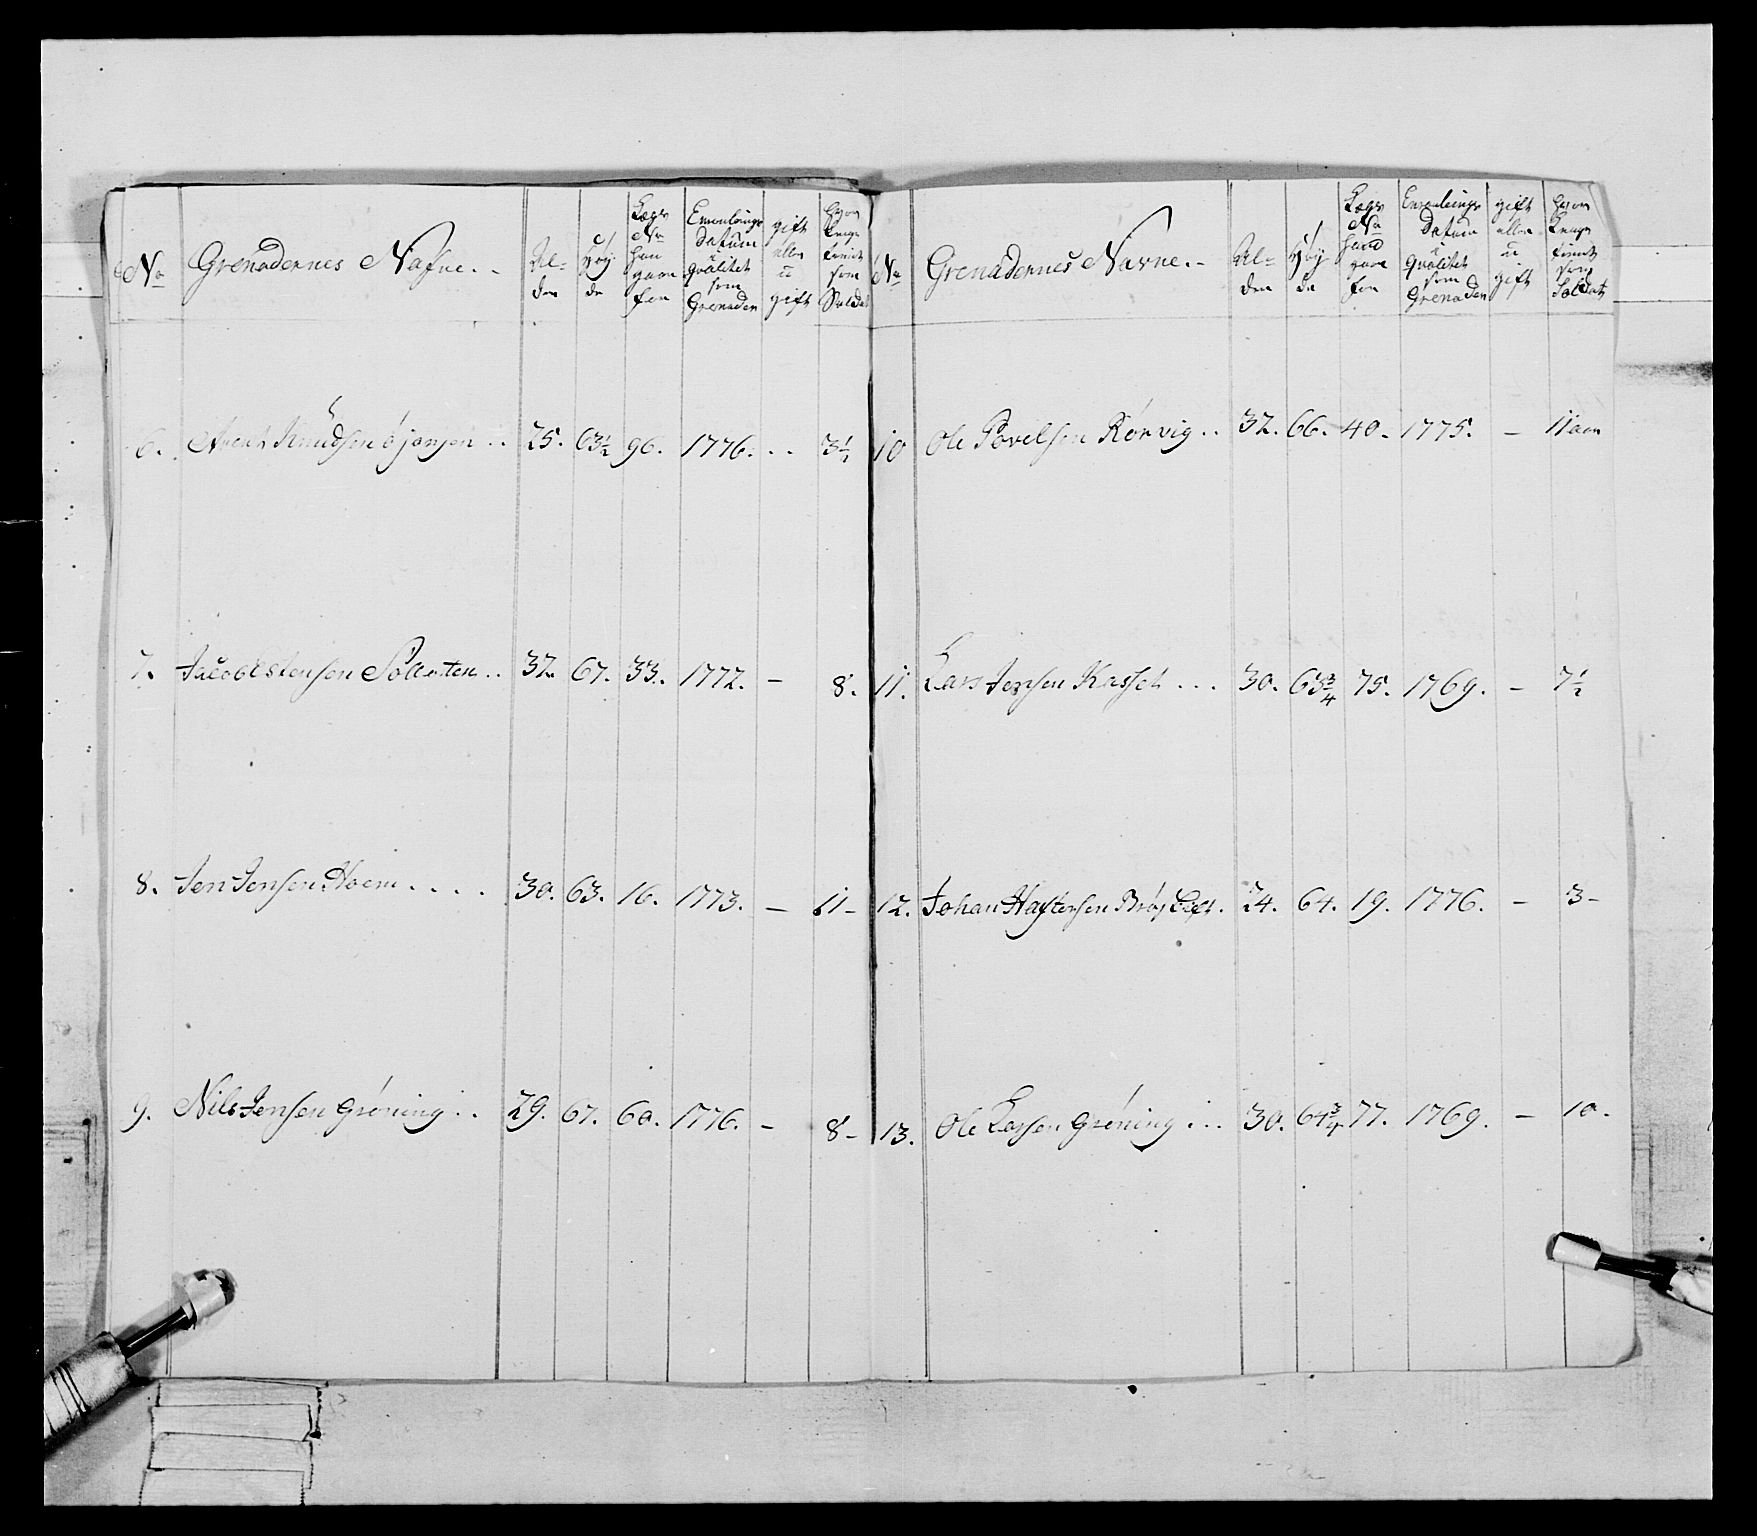 No
Grenaderernes Nafne..
Al=
der
Høy-
de
Lægs
No
han
gaar
for
Enroulrings
Datum
u
Qvalitet
som
Grenader
gift
eller
u
gift
hvor
længe
tient
som
Soldat
6. Knudsen 25. 63½ 96. 1776. .. 3½
7. Jacob Estensen 32. 67. 33. 1772. – 8.
8. Jens Jensen Hoem.... 30. 63. 16. 1773. – 11–
9. Nils Jensen Grøning.. 29. 67. 60. 1776. – 8–
No
Grenadernes Navne..
Al=
der
Høy-
de
Lægs
No
hand
gaar
for
Enroulrings
Datum
u
Qvalitet
som
Grenader
gift
eller
u
gift
hvor
længe
tient
som
Soldat
10 Ole Povelsen Rørvig.. 32. 66. 40. 1775. – 11 aar
11. Lars Jensen Kasset... 30. 63¾ 75. 1769. – 7½
12. Johan 24. 64. 19. 1776. – 3–
13. Ole Larsen Grøning... 30. 64¾ 77. 1769. – 10.